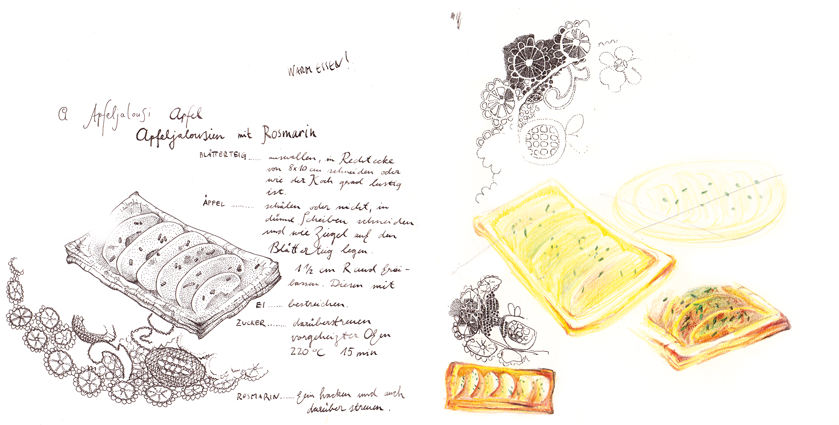 WARM ESSEN!
Apfeljalousi Apfel
Apfeljalousien mit Rosmarin
BLÄTTERTEIG ...... auswallen, in Rechtecke
von 8x10 cm schneiden oder
wie der Koch grad lustig
ist.
ÄPFEL ...... schälen oder nicht, in
dünne Scheiben schneiden
und wie Ziegel auf den
Blätterteig legen.
1 1/2 cm Rand frei-
lassen. Diesen mit
EI ...... bestreichen.
ZUCKER ...... darüberstreuen
vorgeheizter Ofen
220°C 15 min
ROSMARIN ...... fein hacken und auch
darüber streuen.